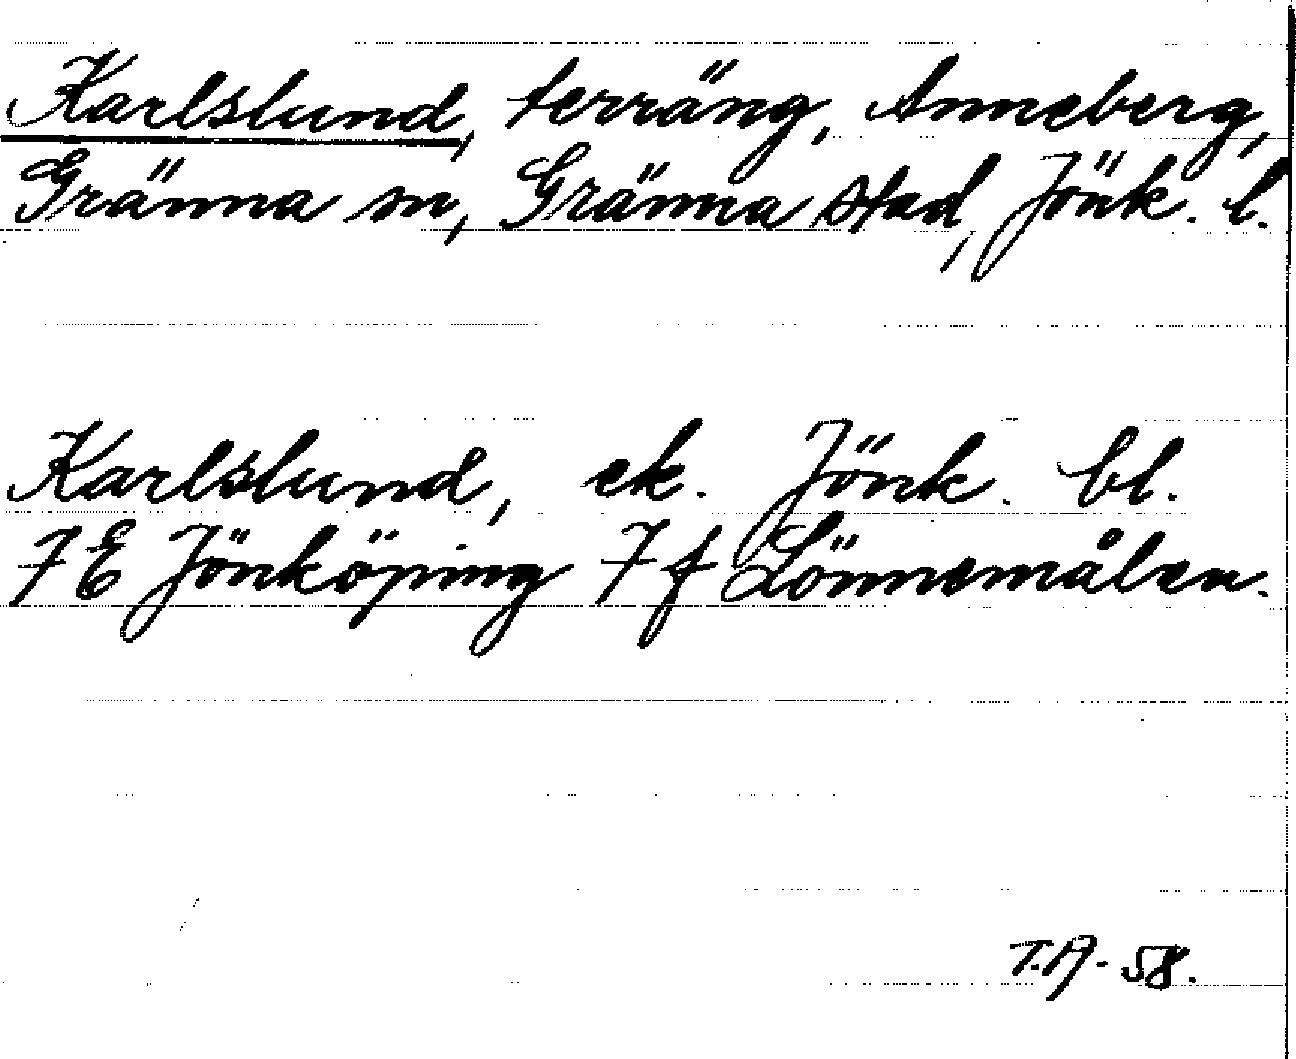 Karlslund, terräng, Anneberg,
Gränna sn, Gränna stad, Jönk. l.
Karlslund, ek. Jönk. bl.
7E Jönköping 7f Lönnemålen.
T.A- 58.